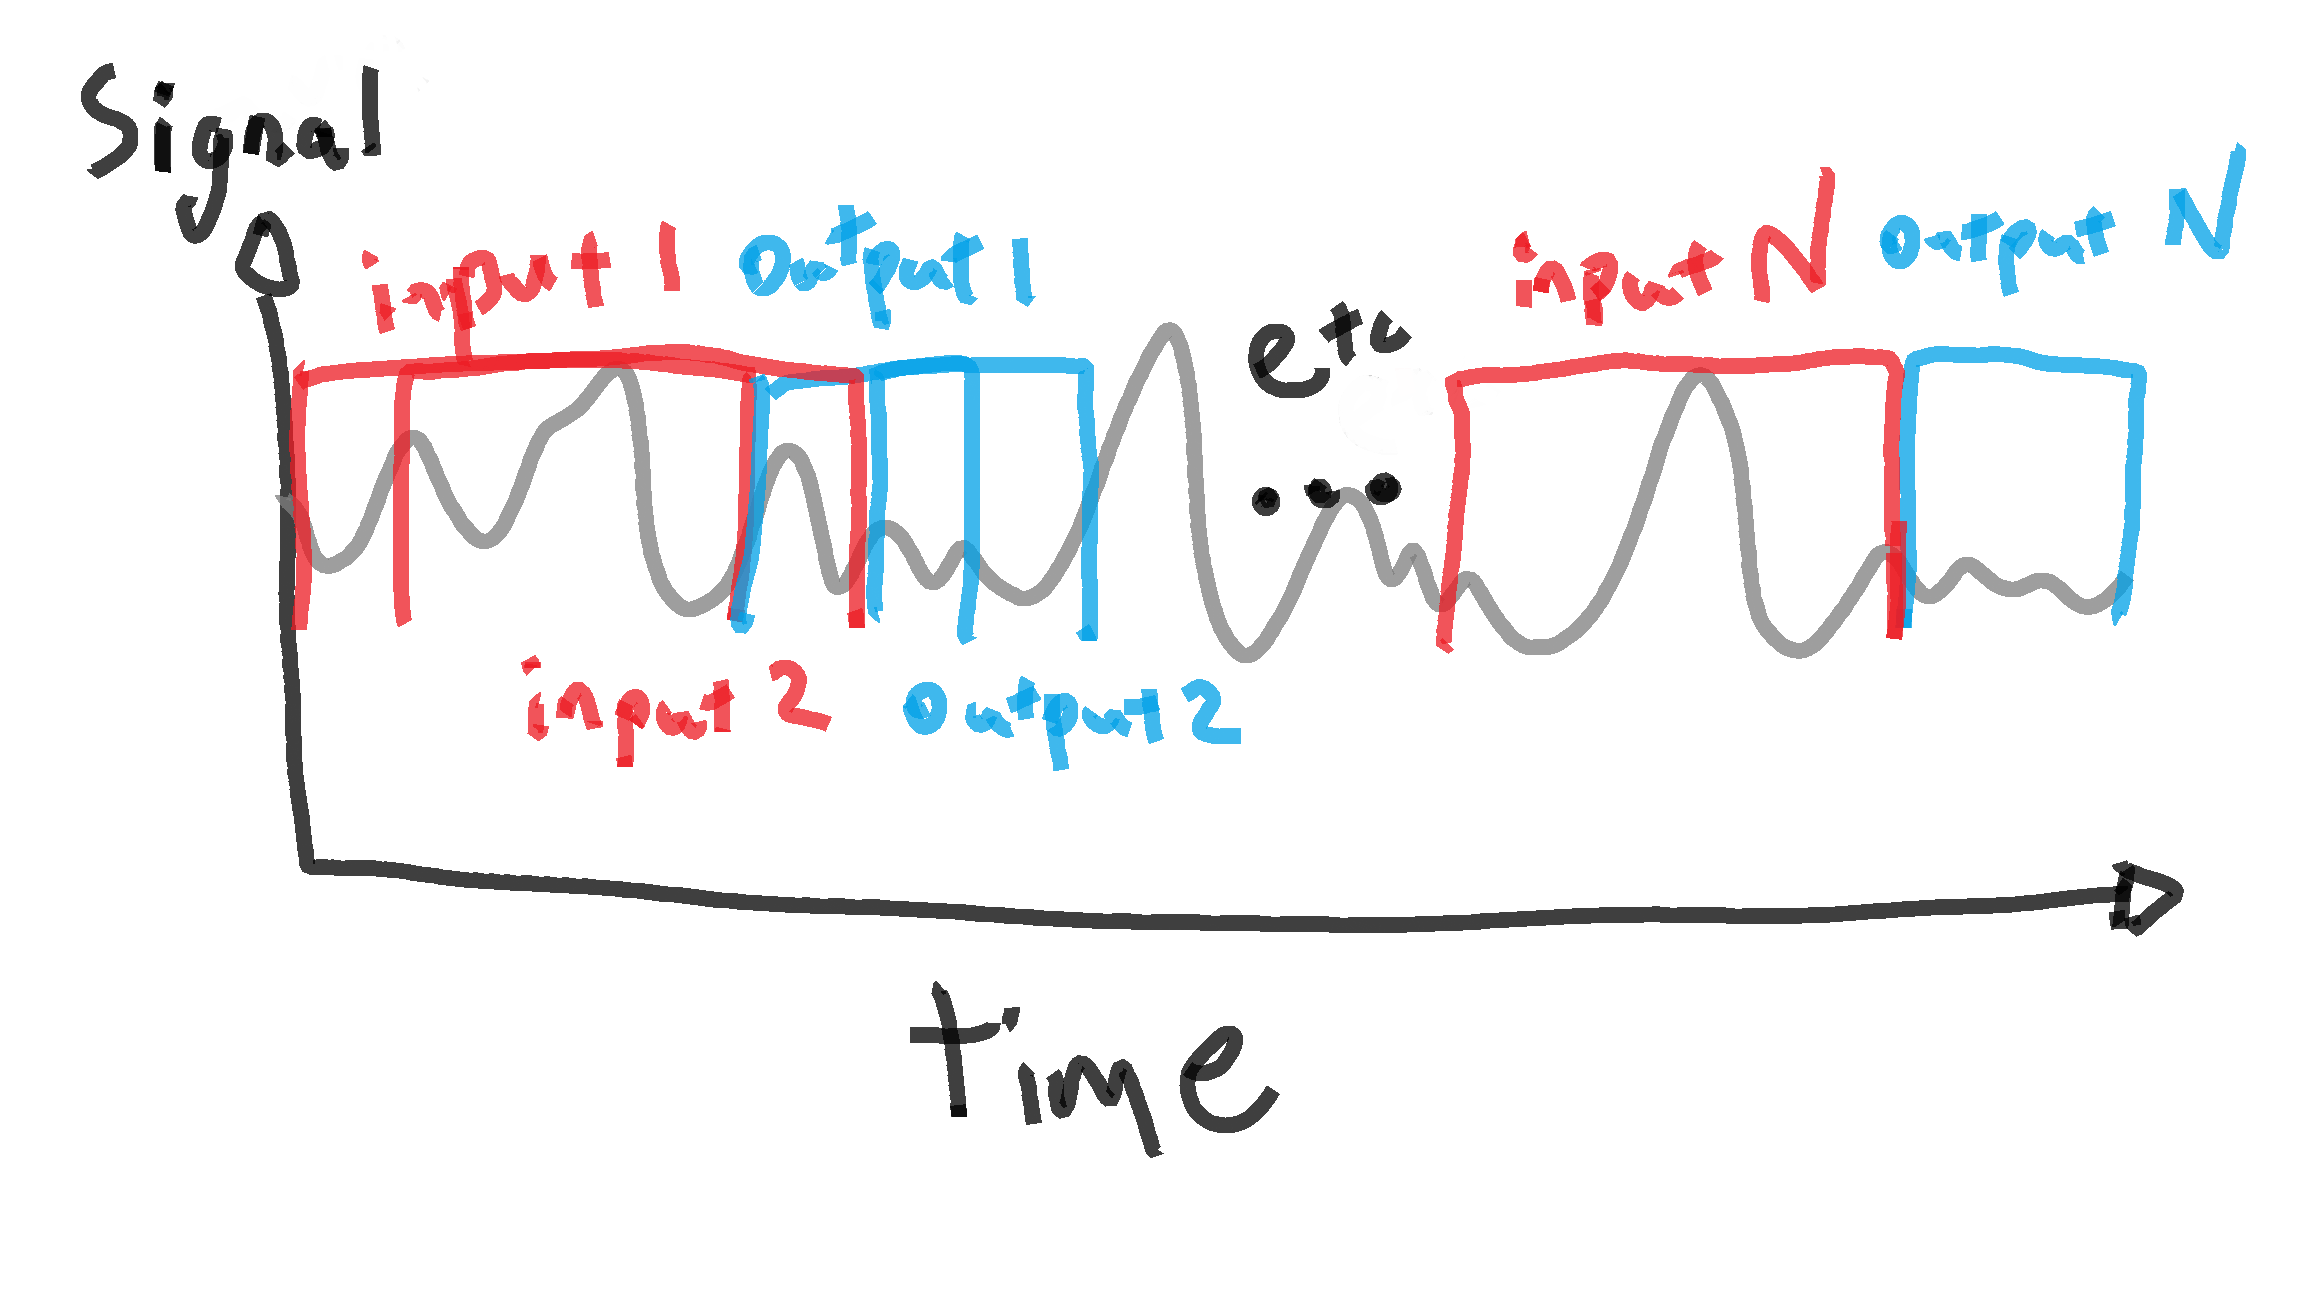 Signal
input 1 output 1
etc
input N output N
...
input 2 output 2
time